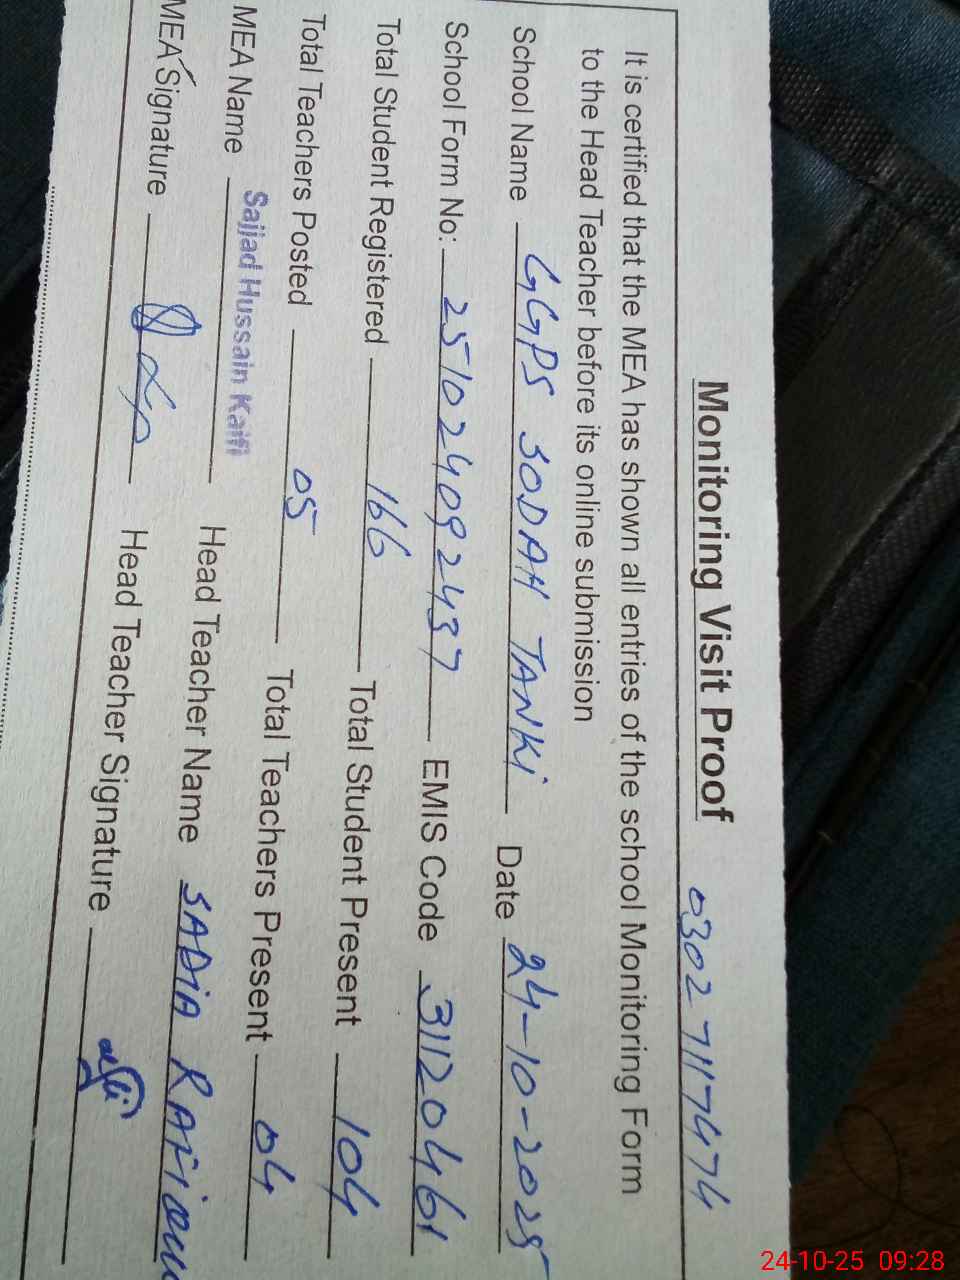 Monitoring Visit Proof 0302 7117474
It is certified that the MEA has shown all entries of the school Monitoring Form
to the Head Teacher before its online submission
School Name GGPS SODAH TANKi Date 24-10-2025
School Form No: 251024092437 EMIS Code 31120461
Total Student Registered 166 Total Student Present 104
Total Teachers Posted 05 Total Teachers Present 04
MEA Name Sajjad Hussain Kaifi Head Teacher Name SADiA
MEA Signature Head Teacher Signature
24-10-25 09:28